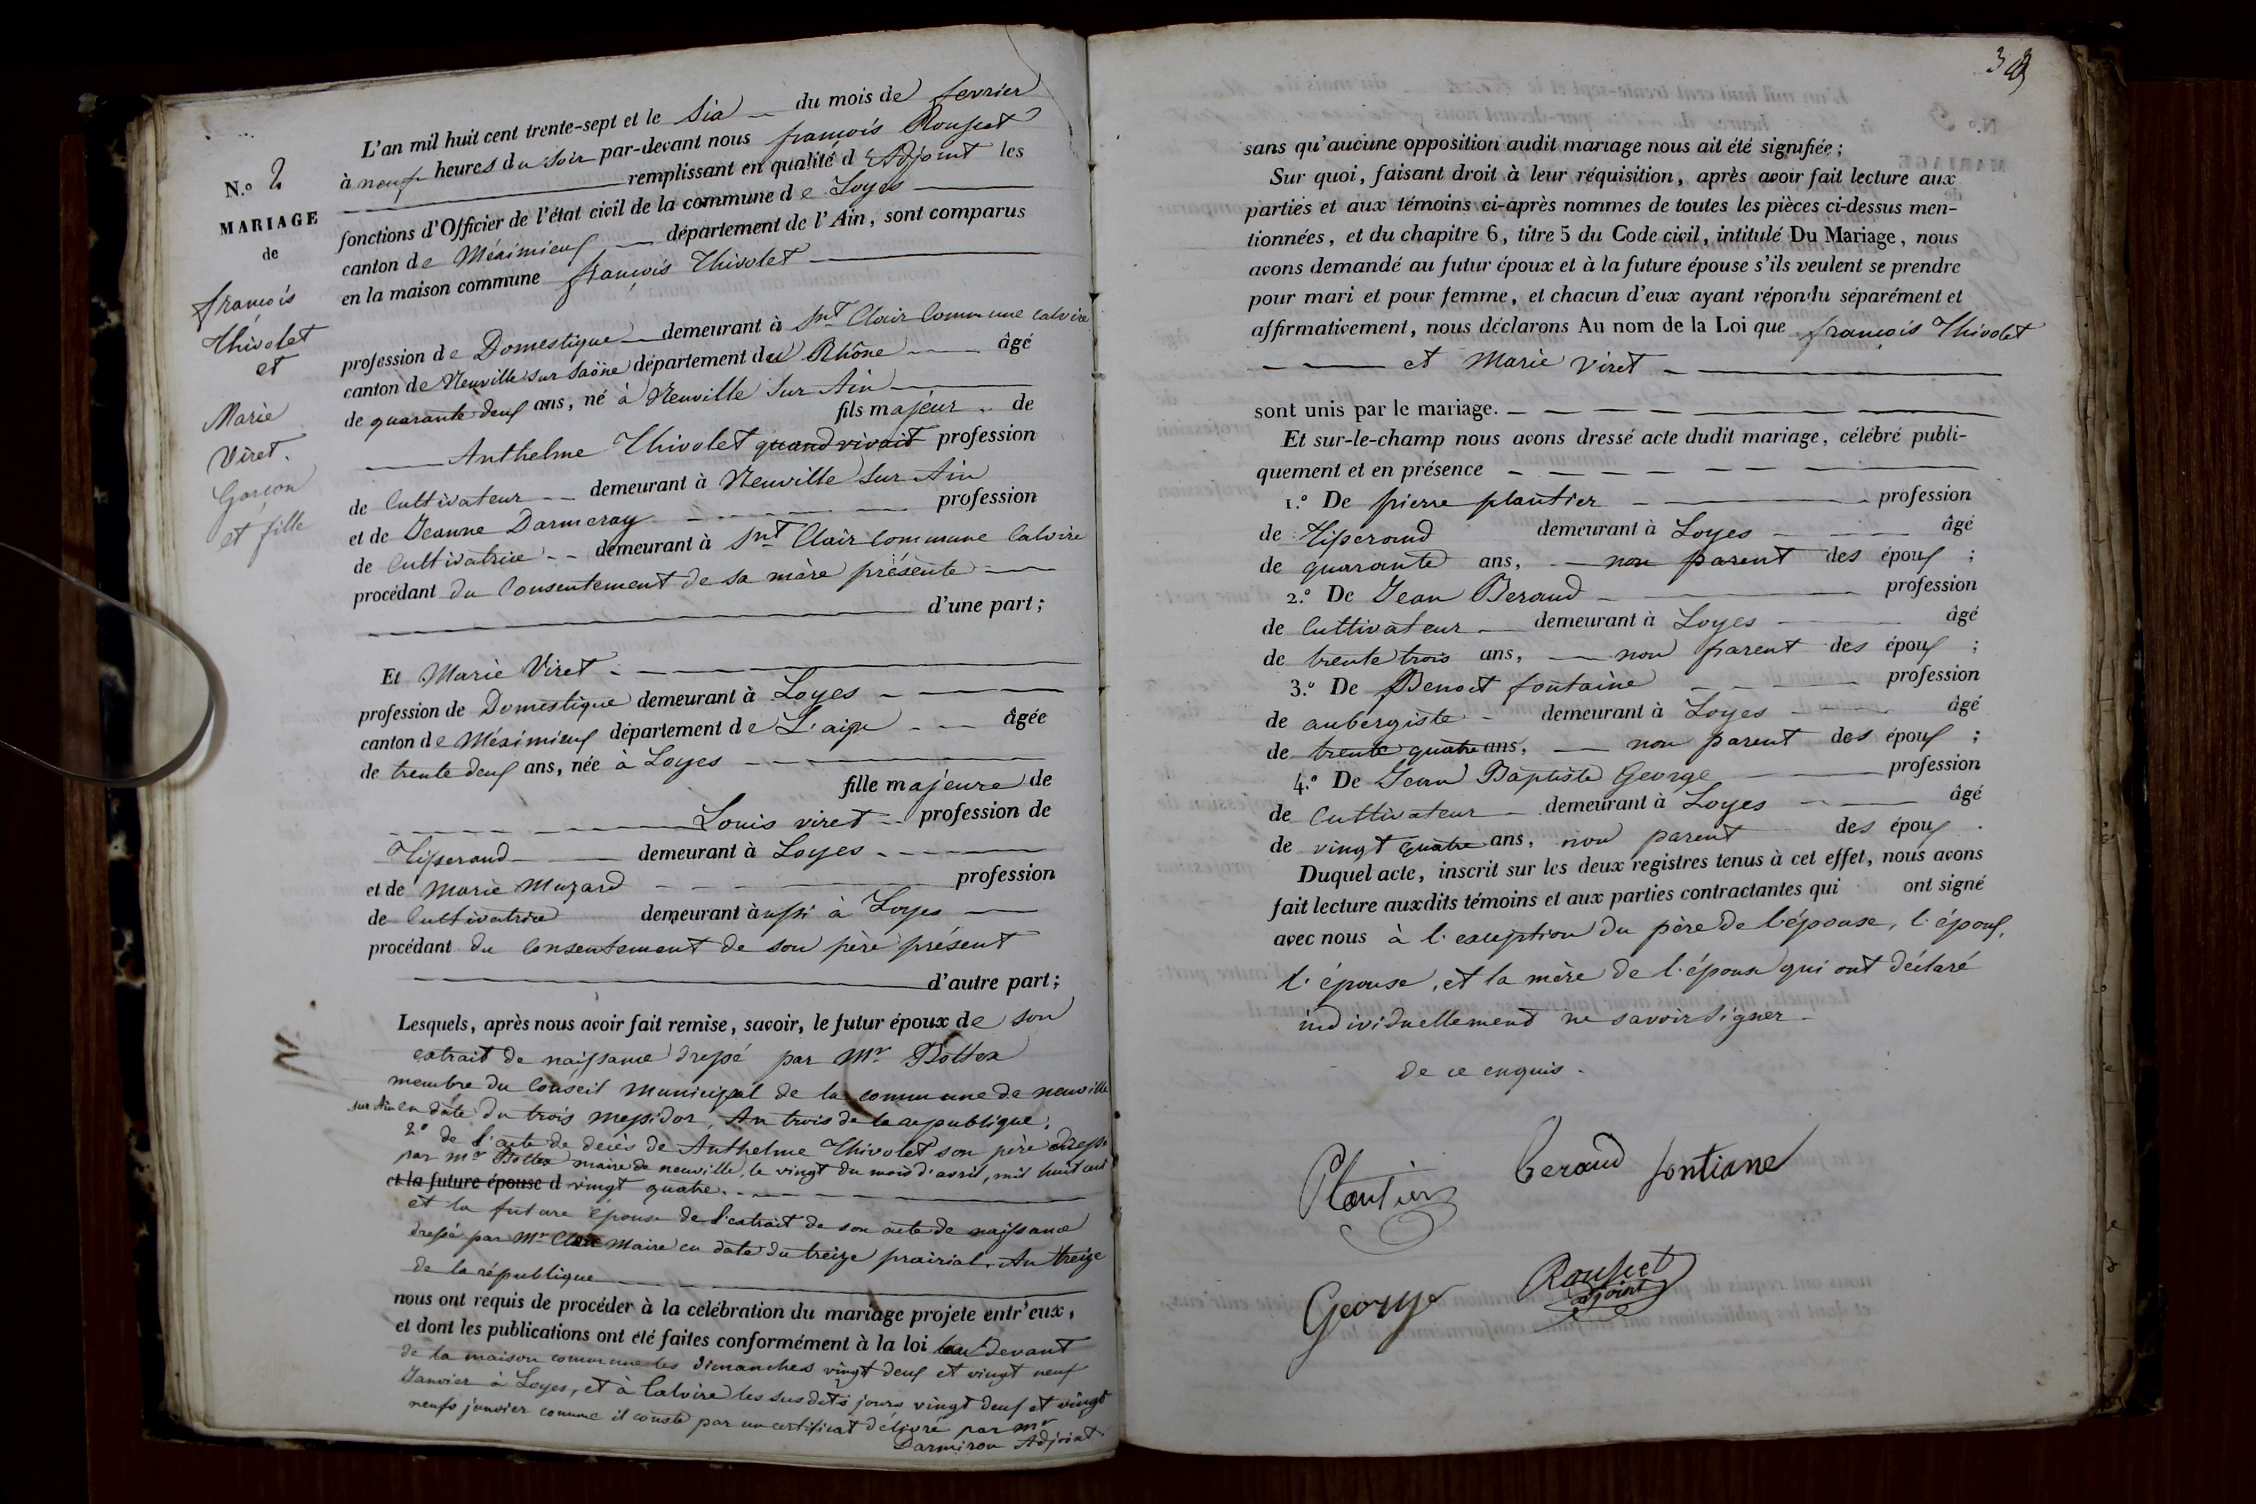 N.o 2
MARIAGE
de
françois
Thivolet
et
Marie
Viret.
Garçon
et fille
L'an mil huit cent trente-sept et le Six du mois de fevrier
à neuf heures du soir par-devant nous françois Rousset
remplissant en qualité d'Adjoint les
fonctions d'Officier de l'état civil de la commune de Loyes
canton de Méximieux département de l'Ain, sont comparus
en la maison commune françois Thivolet
profession de Domestique demeurant à Snt Clair Commune Calvire
canton de Neuville sur Saône département du Rhône âgé
de quarante deux ans, né à Neuville Sur Ain
fils majeur de
Anthelme Thivolet quand vivait profession
de Cultivateur demeurant à Neuville Sur Ain
et de Jeanne Darmeray profession
de Cultivatrice demeurant à Snt Clair Commune Calvire
procédant du Consentement de sa mère présente
d'une part;
Et Marie Viret
profession de Domestique demeurant à Loyes
canton de Méximieux département de L'ain âgée
de trente deux ans, née à Loyes
fille majeure de
Louis viret profession de
Tisserand demeurant à Loyes
et de Marie Muzard profession
de Cultivatrice demeurant àussi à Loyes
procédant du Consentement de son père présent
d'autre part;
Lesquels, après nous avoir fait remise, savoir, le futur époux de son
extrait de naissance dressé par Mr Bottex
membre du Conseil Municipal de la commune de neuville
sur Ain en date du trois Messidor, An trois de la republique;
2o de l'acte de décès de Anthelme Thivolet son père dressé
par mr Bottex maire de neuville, le vingt du mois d'avril, mil huit cent
et la future épouse d vingt quatre.
et la future épouse de l'extrait de son acte de naissance
dressé par Mr Maire en date du treize prairial, An treize
de la république
nous ont requis de procéder à la celébration du mariage projete entr'eux,
et dont les publications ont été faites conformément à la loi au devant
de la maison commune les dimanches vingt deux et vingt neuf
Janvier à Loyes, et à Calvire les susdits jours vingt deux et vingt
neufs janvier comme il conste par un certificat délivré par Mr
Darmiron Adjoint
sans qu'aucune opposition audit mariage nous ait été signifiée;
Sur quoi, faisant droit à leur réquisition, après avoir fait lecture aux
parties et aux témoins ci-après nommes de toutes les pièces ci-dessus men-
tionnées, et du chapitre 6, titre 5 du Code civil, intitulé Du Mariage, nous
avons demandé au futur époux et à la future épouse s'ils veulent se prendre
pour mari et pour femme, et chacun d'eux ayant répondu séparément et
affirmativement, nous déclarons Au nom de la Loi que françois Thivolet
et Marie Viret
sont unis par le mariage.
Et sur-le-champ nous avons dressé acte dudit mariage, célébré publi-
quement et en présence
1.o De pierre plantier profession
de Tisserand demeurant à Loyes âgé
de quarante ans, non parent des époux ;
2.o De Jean Beraud profession
de Cultivateur demeurant à Loyes âgé
de trente trois ans, non parent des époux ;
3.o De Benoit fontaine profession
de aubergiste demeurant à Loyes âgé
de trente quatre ans, non parent des époux ;
4.o De Jean Baptiste George profession
de Cultivateur demeurant à Loyes âgé
de vingt quatre ans, non parent des époux .
Duquel acte, inscrit sur les deux registres tenus à cet effet, nous avons
fait lecture auxdits témoins et aux parties contractantes qui ont signé
avec nous à l'exception du père de l'épouse, l'époux,
l'épouse, et la mère de l'époux qui ont déclaré
individuellement ne savoir signer
de ce enquis.
Plantier beraud fontiane
George Rousset
adjoint